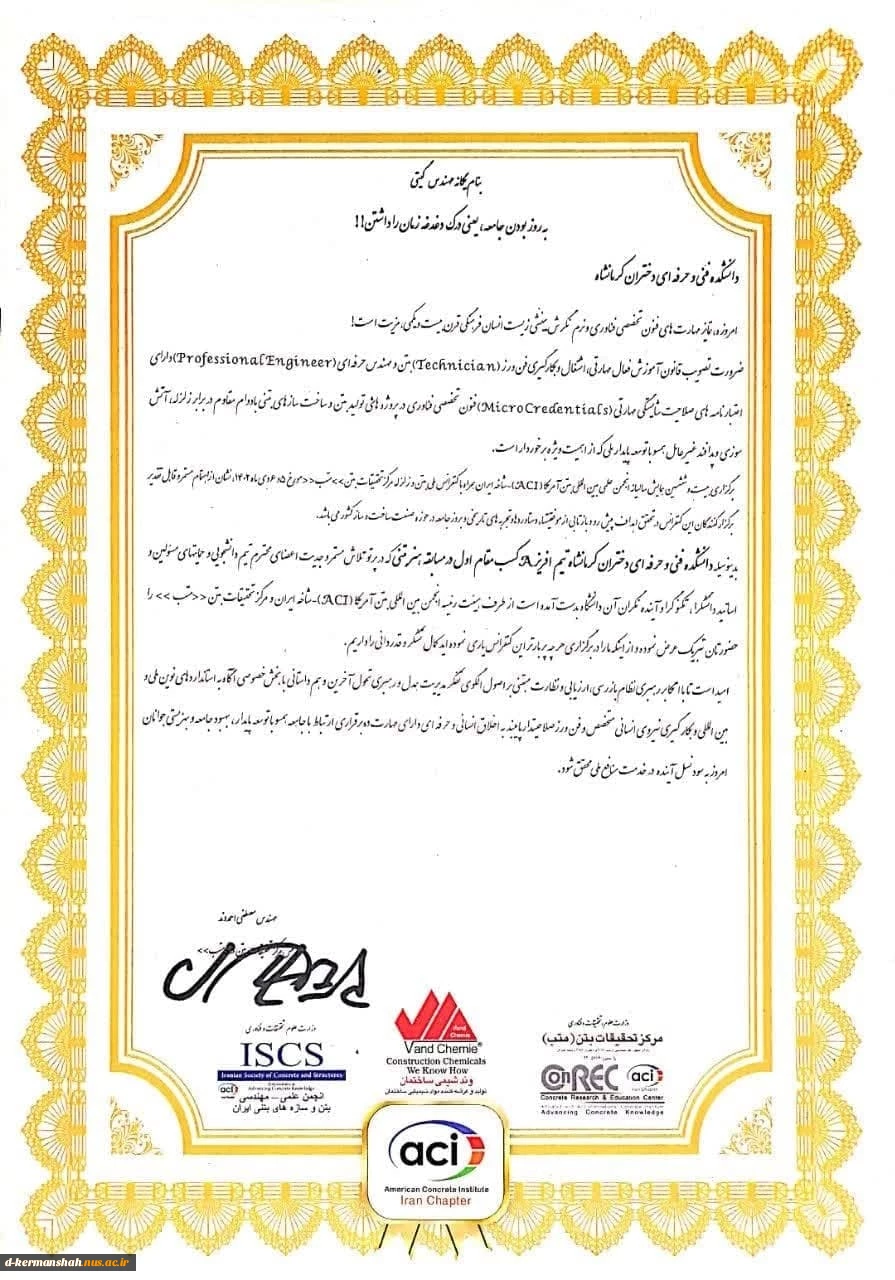 بنام یگانه مهندس گیتی
به روز بودن جامعه، یعنی درک دغدغه زمان را داشتن!!
دانشکده فنی و حرفه ای دختران کرمانشاه
امروزه، نیاز مهارت های فنون تخصصی فناوری و نرم نگرش بینشی زیست انسان فرهنگی قرن بیست و یکمی، مزیت است!
ضرورت تصویب قانون آموزش فعال مهارتی، اشتغال و بکارگیری فن ورز (Technician) بتن و مهندس حرفه ای (Professional Engineer) دارای
اعتبار نامه های صلاحیت شایستگی مهارتی (Micro Credentials) فنون تخصصی فناوری در پروژه های تولید بتن و ساخت سازه های بتنی با دوام مقاوم در برابر زلزله، آتش
سوزی و پدافند غیر عامل همسو با توسعه پایدار ملی که از اهمیت ویژه برخوردار است.
برگزاری بیست و ششمین همایش سالیانه انجمن علمی بین المللی بتن آمریکا (ACI)-شاخه ایران همراه با کنفرانس ملی بتن و زلزله مرکز تحقیقات بتن >>متب<< مورخ ۵و۶ دی ماه ۱۴۰۲، نشان از اهتمام مستمر و قابل تقدیر
برگزار کنندگان این کنفرانس در تحقق اهداف پیش رو و بازتابی از موفقیتها، دستاوردها و تجربه های تاریخی و بروز جامعه در حوزه صنعت ساخت و ساز کشور می باشد.
بدینوسیله دانشکده فنی و حرفه ای دختران کرمانشاه تیم افریز A کسب مقام اول در مسابقه هنر بتنی که در پرتو تلاش مستمر و جدیت اعضای محترم تیم دانشجویی و حمایتهای مسئولین و
اساتید دانشگرا، تکنوگرا و آینده نگران آن دانشگاه بدست آمده است از طرف هیئت رئیسه انجمن بین المللی بتن آمریکا (ACI)-شاخه ایران و مرکز تحقیقات بتن <<متب>> را
حضورتان تبریک عرض نموده و از اینکه ما را در برگزاری هر چه پر بارتر این کنفرانس یاری نموده اید کمال تشکر و قدردانی را داریم.
امید است تا با ابتکار رهبری نظام بازرسی، ارزیابی و نظارت مبتنی بر اصول الگوی تفکر مدیریت بدل و رهبری تحول آخرین و هم داستانی با بخش خصوصی آگاه به استانداردهای نوین ملی و
بین المللی و بکارگیری نیروی انسانی متخصص و فن ورز صلاحیتدار پایبند به اخلاق انسانی و حرفه ای دارای مهارت ده برقراری ارتباط با جامعه همسو با توسعه پایدار، بهبود جامعه و بهزیستی جوانان
امروز به سود نسل آینده در خدمت منافع ملی محقق شود.
مهندس مصطفی احمدوند
وزارت علوم، تحقیقات و فناوری
ISCS
Iranian Society of Concrete and Structures
aci
Advancing Concrete Knowledge
انجمن علمی - مهندسی
بتن و سازه های بتنی ایران
Vand Chemie
Vand Chemie®
Construction Chemicals
We Know How
وند شیمی ساختمان
تولید و عرضه کننده مواد شیمیایی ساختمان
وزارت علوم، تحقیقات و فناوری
مرکز تحقیقات بتن (متب)
ConREC aci
Concrete Research & Education Center
Advancing Concrete Knowledge
aci
American Concrete Institute
Iran Chapter
d-kermanshah.nus.ac.ir